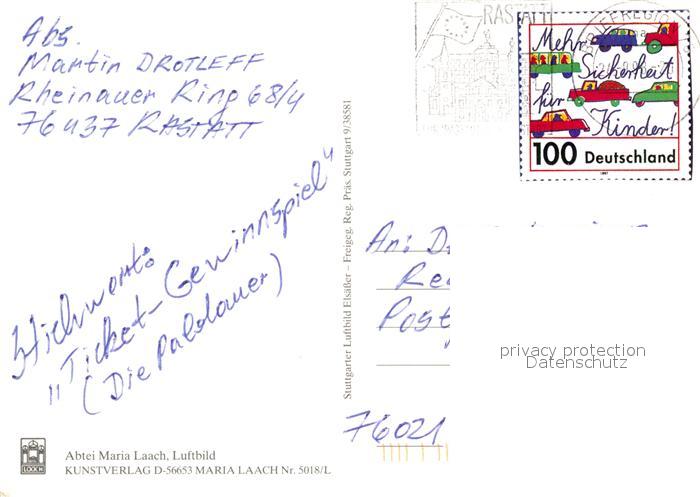 Abs.
Martin DROTLEFF
Rheinauer Ring 68/4
76437 RASTATT
RASTATT
BRIEFREGION
Mehr
Sicherheit
für
Kinder!
100 Deutschland
1997
Stichwort:
"Ticket-Gewinnspiel"
(Die Paldauer)
Stuttgarter Luftbild Elsäßer – Freigeg. Reg. Präs. Stuttgart 9/38581
An: D
Re
Post
privacy protection
Datenschutz
76021
LAACH
Abtei Maria Laach, Luftbild
KUNSTVERLAG D-56653 MARIA LAACH Nr. 5018/L